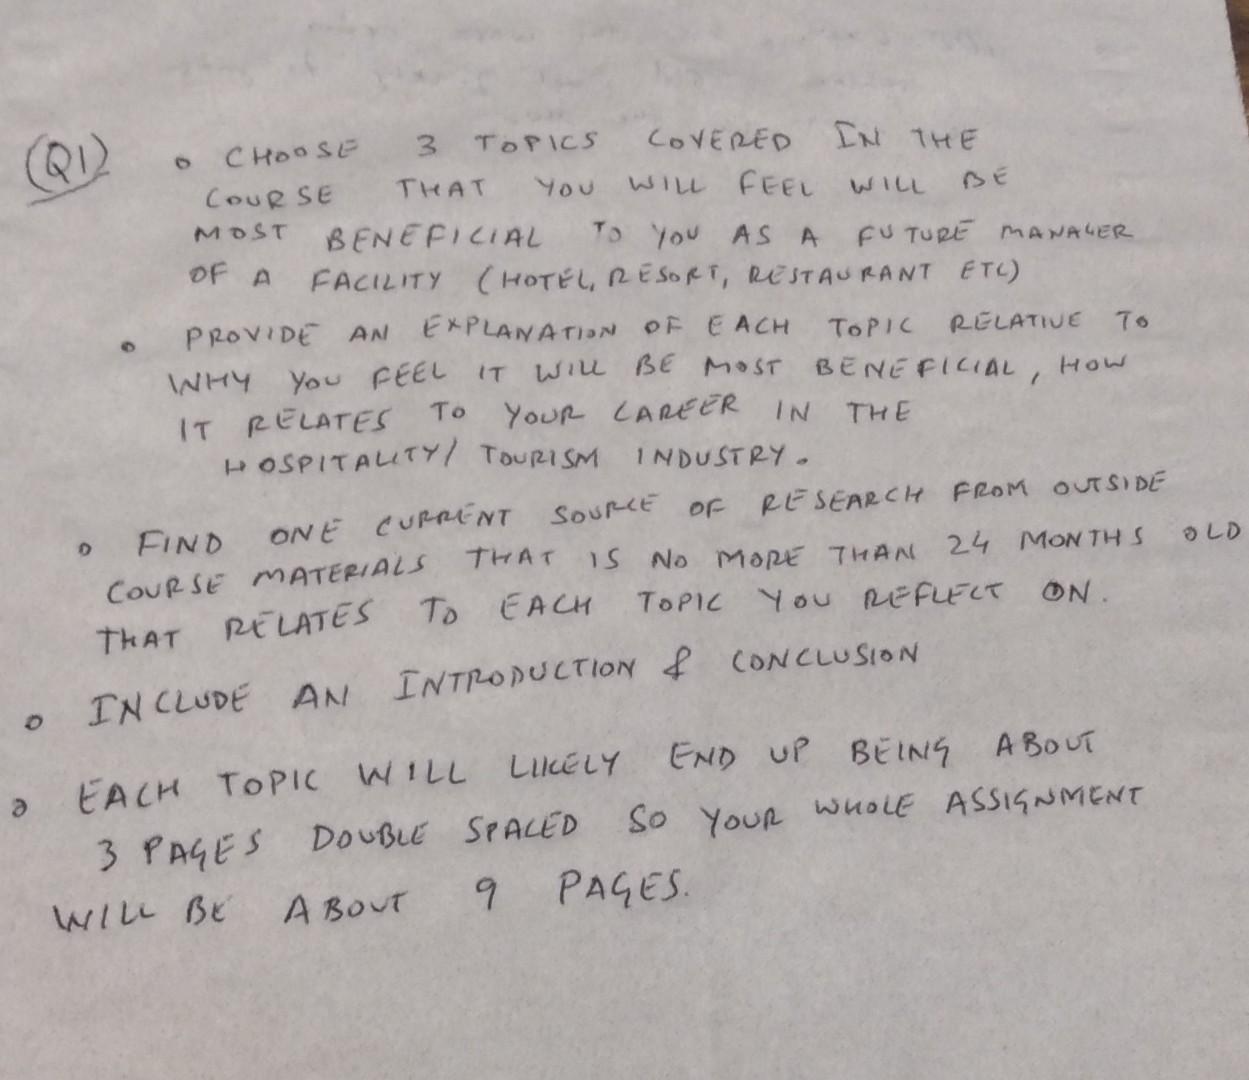 (Q1) o CHOOSE 3 TOPICS COVERED IN THE
COURSE THAT YOU WILL FEEL WILL BE
MOST BENEFICIAL TO YOU AS A FUTURE MANAGER
OF A FACILITY (HOTEL, RESORT, RESTAURANT ETC)
o PROVIDE AN EXPLANATION OF EACH TOPIC RELATIVE TO
WHY YOU FEEL IT WILL BE MOST BENEFICIAL, HOW
IT RELATES TO YOUR CAREER IN THE
HOSPITALITY/ TOURISM INDUSTRY.
o FIND ONE CURRENT SOURCE OF RESEARCH FROM OUTSIDE
COURSE MATERIALS THAT IS NO MORE THAN 24 MONTHS OLD
THAT RELATES TO EACH TOPIC YOU REFLECT ON.
o INCLUDE AN INTRODUCTION & CONCLUSION
o EACH TOPIC WILL LIKELY END UP BEING ABOUT
3 PAGES DOUBLE SPACED SO YOUR WHOLE ASSIGNMENT
WILL BE ABOUT 9 PAGES.